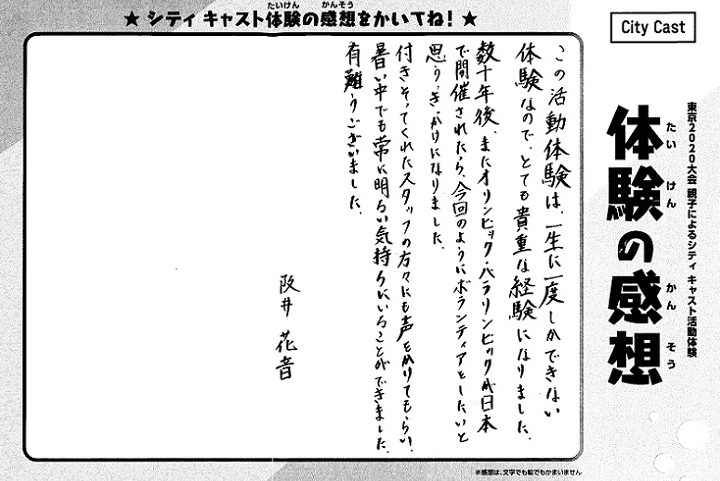 ★ シティ キャスト体験の感想をかいてね! ★
たいけん かんそう
City Cast
東京2020大会 親子によるシティ キャスト活動体験
体験の感想
たい けん かん そう
この活動体験は、一生に一度しかできない
体験なので、とても貴重な経験になりました。
数十年後、またオリンピック・パラリンピックが日本
で開催されたら、今回のようにボランティアをしたいと
思うきっかけになりました。
付きそってくれたスタッフの方々にも声をかけてもらい、
暑い中でも常に明るい気持ちでいることができました。
有難うございました。
阪井 花音
※感想は、文字でも絵でもかまいません